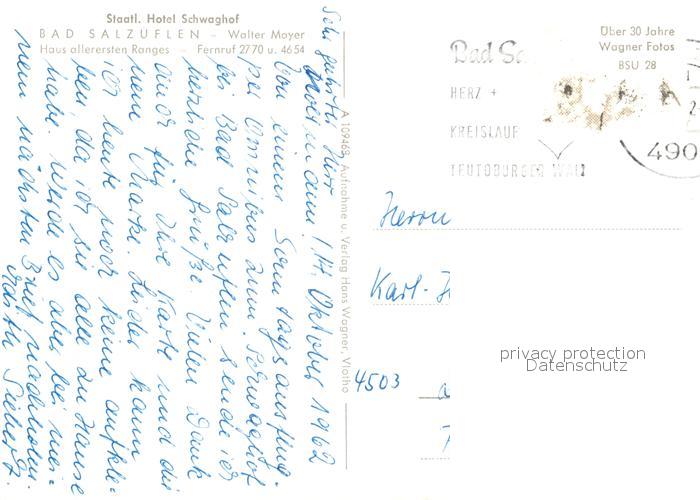 Staatl. Hotel Schwaghof
BAD SALZUFLEN – Walter Mayer
Haus allerersten Ranges – Fernruf 2770 u. 4654
Sehr geehrter Herr
14. Oktober 1962
Von einem Sonntagsausflug
per Omnibus zum Schwaghof
bei Bad Salzuflen sende ich
herzliche Grüße. Vielen Dank
auch für Ihre Karte und die
neue Marke. Leider kann
ich heute noch keine aufkle-
ben, da ich sie alle zu Hause
habe. Werde es aber bei mei-
nem nächsten Brief nachholen.
A 109468 Aufnahme u. Verlag Hans Wagner, Vlotho
Über 30 Jahre
Wagner Fotos
BSU 28
Bad
HERZ +
KREISLAUF
TEUTOBURGER WALD
490
Herrn
Karl-
4503
privacy protection
Datenschutz